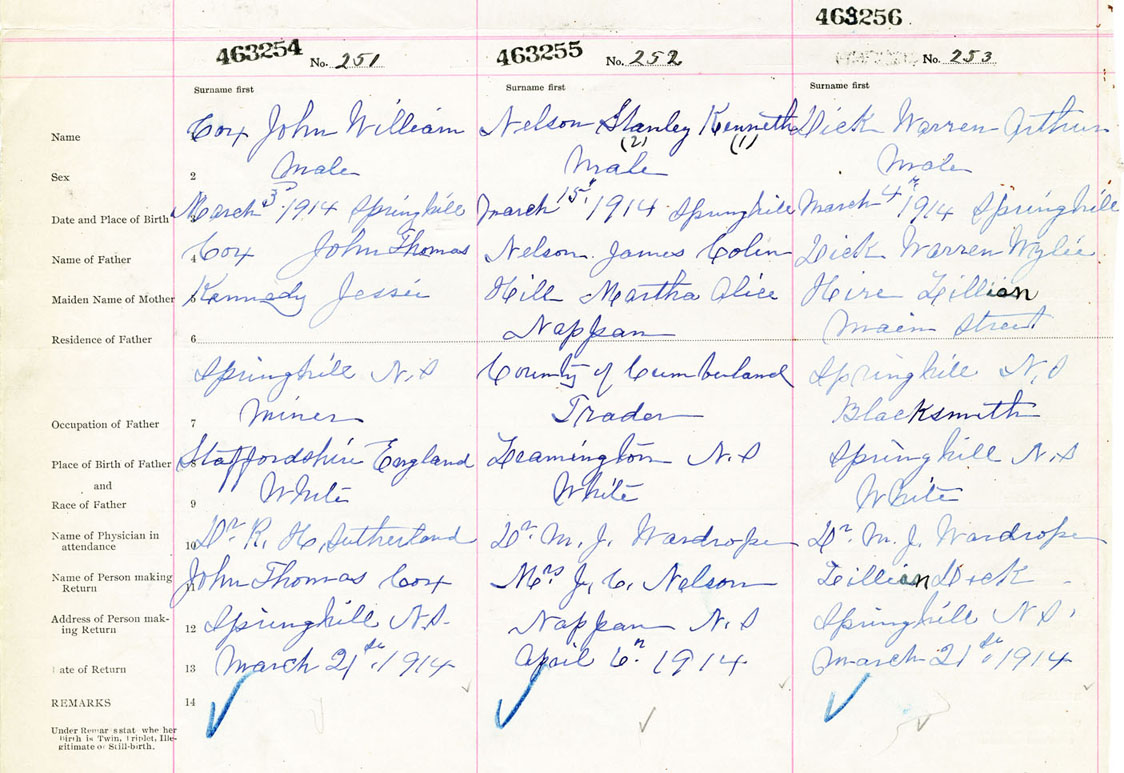 463254 463255 463256
No. 251 No. 252 No. 253
Surname first Surname first Surname first
Name Cox John William Nelson Stanley Kenneth Dick Warren Arthur
(2) (1)
Sex 2 Male Male Male
Date and Place of Birth 3 March 3rd 1914 Springhill March 15 1914 Springhill March 4th 1914 Springhill
Name of Father 4 Cox John Thomas Nelson James Colin Dick Warren Wylie
Maiden Name of Mother 5 Kennedy Jessie Hill Martha Alice Hire Lillian
Nappan Main Street
Residence of Father 6
Springhill N.S County of Cumberland Springhill N.S
Occupation of Father 7 Miner Trader Blacksmith
Place of Birth of Father 8 Staffordshire England Leamington N.S Springhill N.S
and
Race of Father 9 White White White
Name of Physician in attendance 10 Dr R. H. Sutherland Dr M. J. Wardrope Dr M. J. Wardrope
Name of Person making Return 11 John Thomas Cox Mrs J. C. Nelson Lillian Dick
Address of Person making Return 12 Springhill N.S. Nappan N.S Springhill N.S.
Date of Return 13 March 21st 1914 April 6th 1914 March 21st 1914
REMARKS 14
Under Remarks stat whether
Birth is Twin, Triplet, Ille-
gitimate or Still-birth.